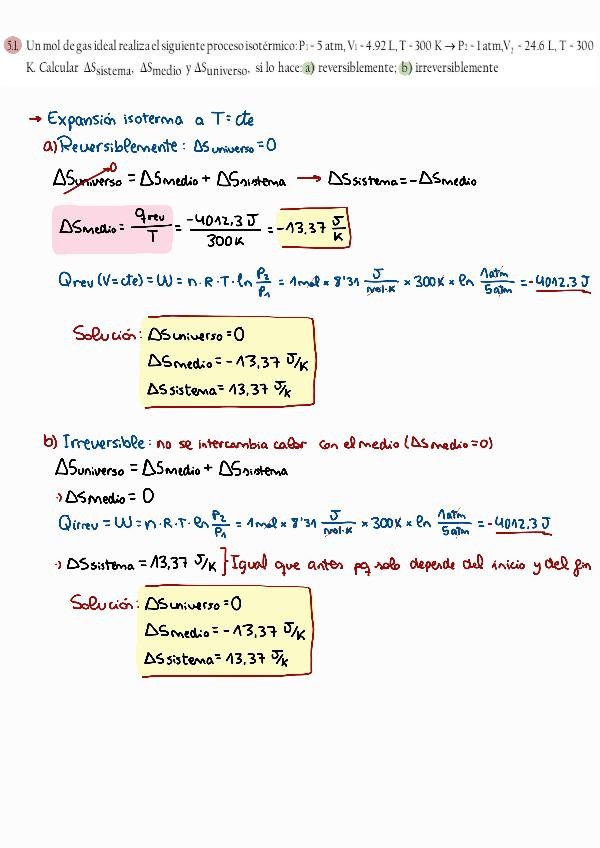 5.1. Un mol de gas ideal realiza el siguiente proceso isotérmico: P₁ - 5 atm, V₁ - 4.92 L, T - 300 K → P₂ - 1 atm, V₂ - 24.6 L, T - 300
K. Calcular ΔSsistema, ΔSmedio y ΔSuniverso, si lo hace: a) reversiblemente; b) irreversiblemente
→ Expansión isoterma a T=cte
a) Reversiblemente: ΔSuniverso=0
ΔSuniverso = ΔSmedio + ΔSsistema → ΔSsistema = -ΔSmedio
0
ΔSmedio = qrev/T = -4012,3 J/300K = -13,37 J/K
Qrev (V=cte) = W = n·R·T·ln P₂/P₁ = 1mol × 8'31 J/mol·K × 300K × ln 1atm/5atm = -4012,3 J
Solución: ΔSuniverso=0
ΔSmedio = -13,37 J/K
ΔSsistema = 13,37 J/K
b) Irreversible: no se intercambia calor con el medio (ΔSmedio=0)
ΔSuniverso = ΔSmedio + ΔSsistema
·) ΔSmedio = 0
Qirrev = W = n·R·T·ln P₂/P₁ = 1mol × 8'31 J/mol·K × 300K × ln 1atm/5atm = -4012,3 J
·) ΔSsistema = 13,37 J/K } Igual que antes pq solo depende del inicio y del fin
Solución: ΔSuniverso=0
ΔSmedio = -13,37 J/K
ΔSsistema = 13,37 J/K